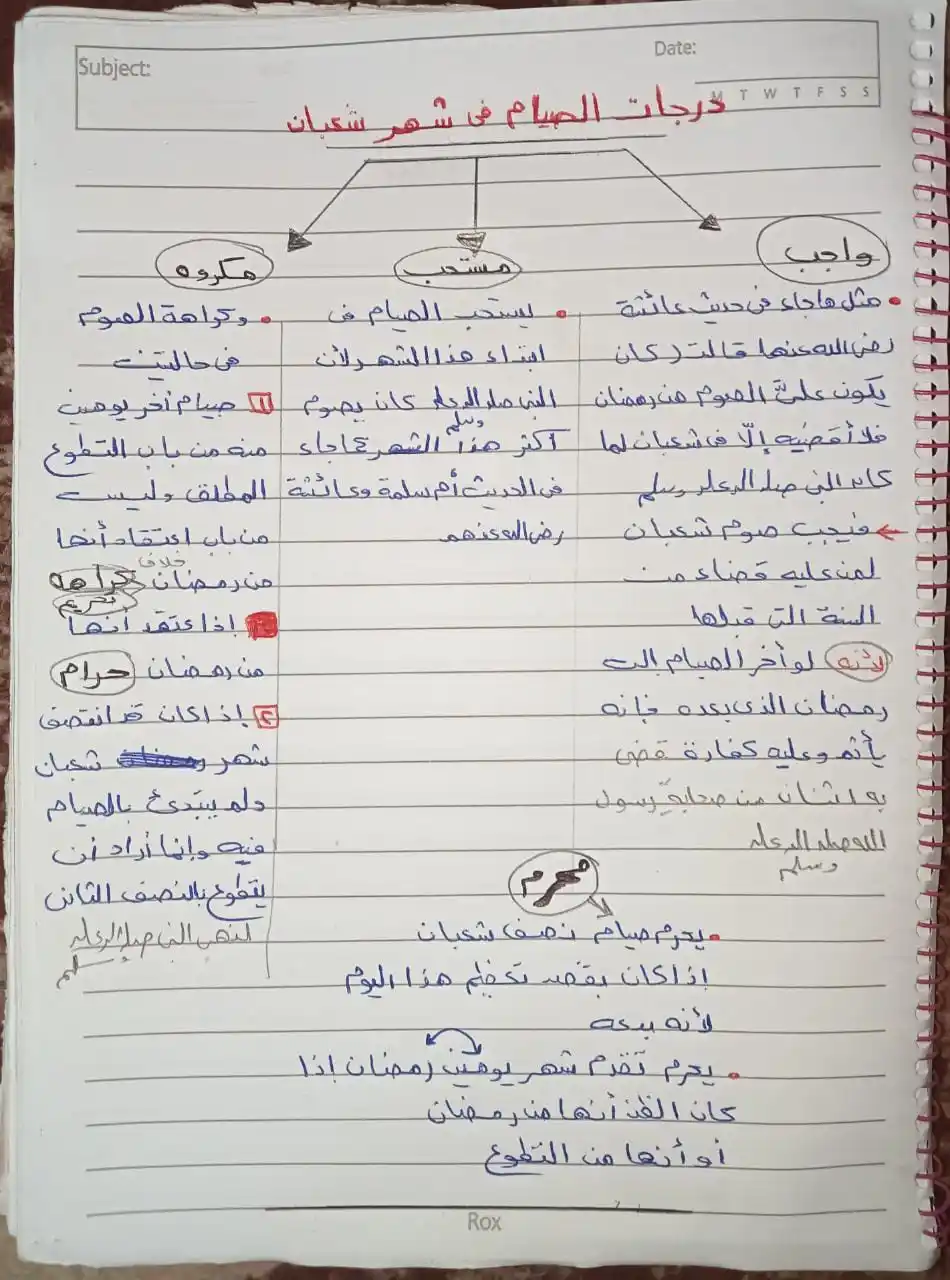 Subject:
Date:
M T W T F S S
درجات الصيام فى شهر شعبان
واجب
• مثل ماجاء فى حديث عائشة
رضى الله عنها قالت ( كان
يكون علىَّ الصوم من رمضان
فلا أقضيه إلّا فى شعبان لما
كان النبى صلى الله عليه وسلم
← فيجب صوم شعبان
لمن عليه قضاء من
السنة التى قبلها
لأنه لو أخر الصيام إلى
رمضان الذى بعده فإنه
يأثم وعليه كفارة قضى
به اثنان من صحابة رسول
الله صلى الله عليه
وسلم
مستحب
• يستحب الصيام فى
ابتداء هذا الشهر لأن
النبى صلى الله عليه كان يصوم
وسلم
أكثر هذا الشهر كما جاء
فى الحديث أم سلمة وعائشة
رضى الله عنهم
مكروه
• وكراهة الصوم
فى حالتين
1 صيام أخر يومين
منه من باب التطوع
المطلق وليست
من باب اعتقاد أنها
خلاف
من رمضان كراهه
تحريم
إذا عتقد أنها
من رمضان حرام
2 إذا كان قد انتصف
شهر شعبان
ولم يبتدئ بالصيام
فيه وإنما أراد أن
يتطوع بالنصف الثانى
لنهى النبى صلى الله عليه
سلم
محرم
• يحرم صيام نصف شعبان
إذا كان بقصد تعظيم هذا اليوم
لأنه بدعه
• يحرم تقدم شهر يومين رمضان إذا
كان الظن أنها من رمضان
أو أنها من التطوع
Rox